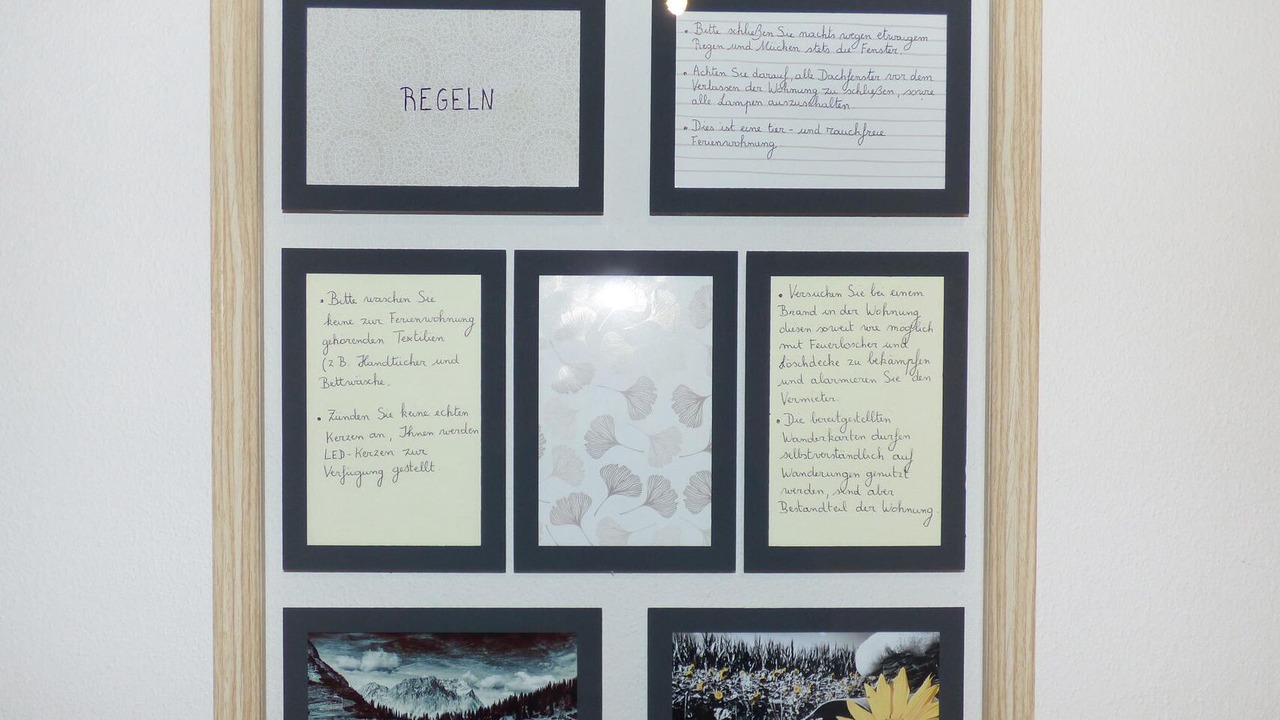 REGELN
• Bitte schließen Sie nachts wegen etwaigem
Regen und Mücken stets die Fenster.
• Achten Sie darauf, alle Dachfenster vor dem
Verlassen der Wohnung zu schließen, sowie
alle Lampen auszuschalten.
• Dies ist eine tier- und rauchfreie
Ferienwohnung
• Bitte waschen Sie
keine zur Ferienwohnung
gehörenden Textilien
(z.B. Handtücher und
Bettwäsche.
• Zünden Sie keine echten
Kerzen an, Ihnen werden
LED-Kerzen zur
Verfügung gestellt
• Versuchen Sie bei einem
Brand in der Wohnung
diesen soweit wie möglich
mit Feuerlöscher und
Löschdecke zu bekämpfen
und alarmieren Sie den
Vermieter.
• Die bereitgestellten
Wanderkarten dürfen
selbstverständlich auf
Wanderungen genutzt
werden, sind aber
Bestandteil der Wohnung.